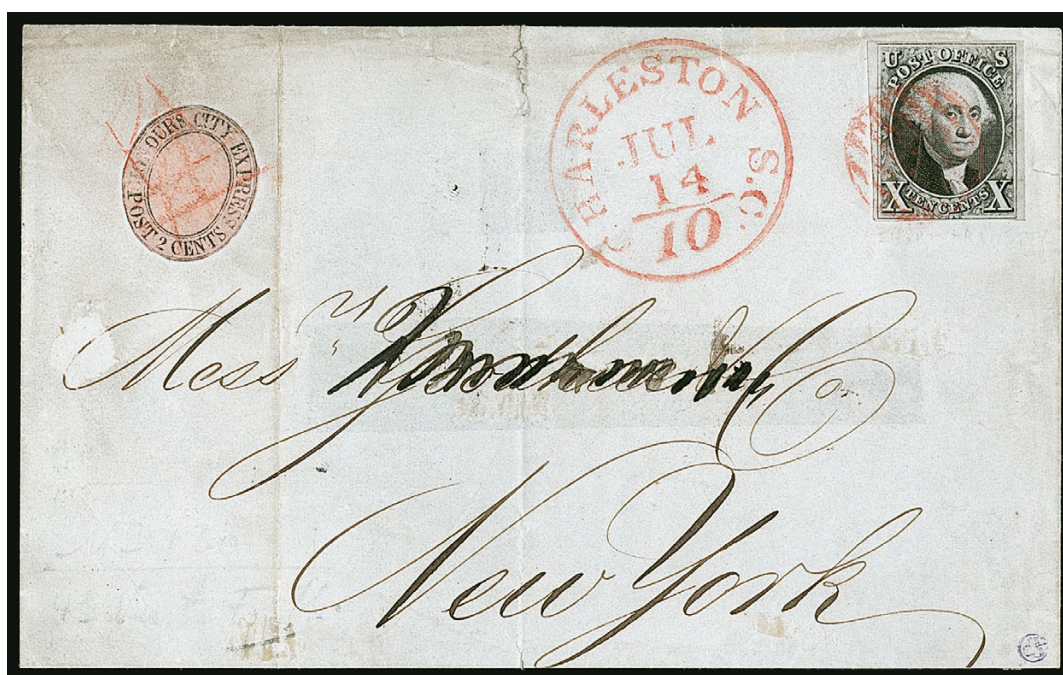 HONOURS CITY EXPRESS
POST 2 CENTS
CHARLESTON S.C.
JUL
14
10
U S
POST OFFICE
X TEN CENTS X
Messrs
& Co
New York